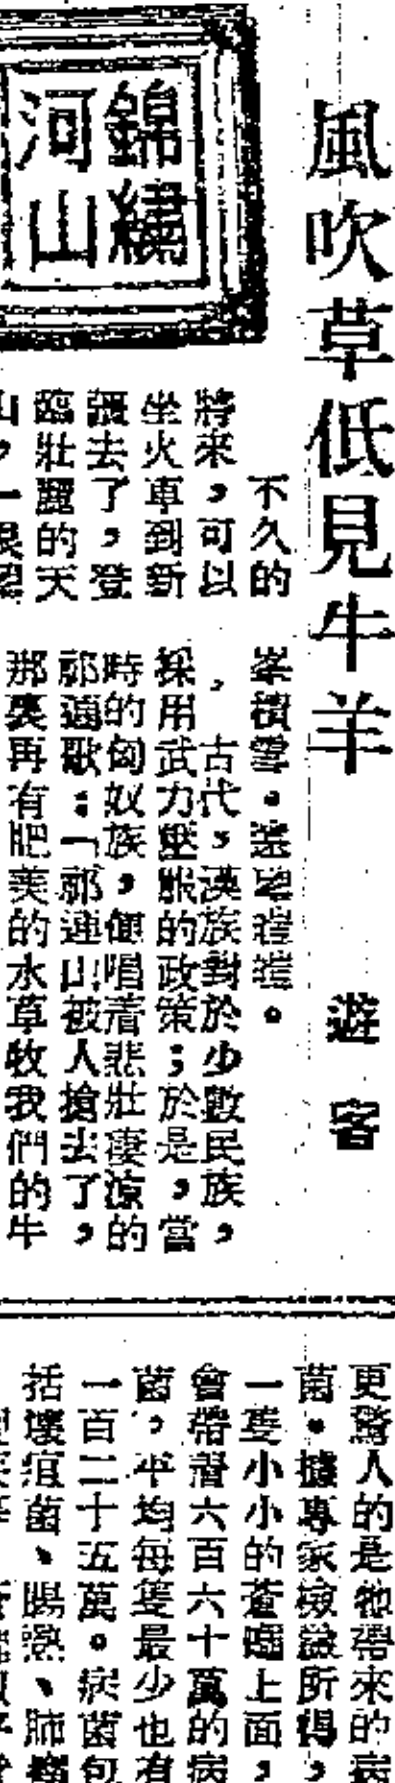 風吹草低見牛羊
遊客
錦繡
河山
不久的
將來，可以
坐火車到新
疆去了，登
臨壯麗的天
山，一眼望
峯積雪。遠遠
，古代，漢族對於少數民族，
採用武力壓服的政策；於是，當
時的匈奴族，便唱着悲壯凄涼的
那邊歌：「祁連山被人搶去了，
那裏再有肥美的水草牧我們的牛
更驚人的是牠帶來的病
菌。據專家檢驗所得，
一隻小小的蒼蠅上面，
會帶着六百六十萬的病
菌，平均每隻最少也有
一百二十五萬。病菌包
括壞疽菌、腸熱、肺癆